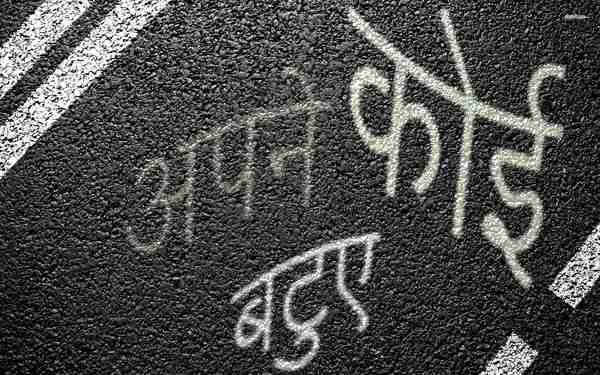 अपने
कोई
बटुए